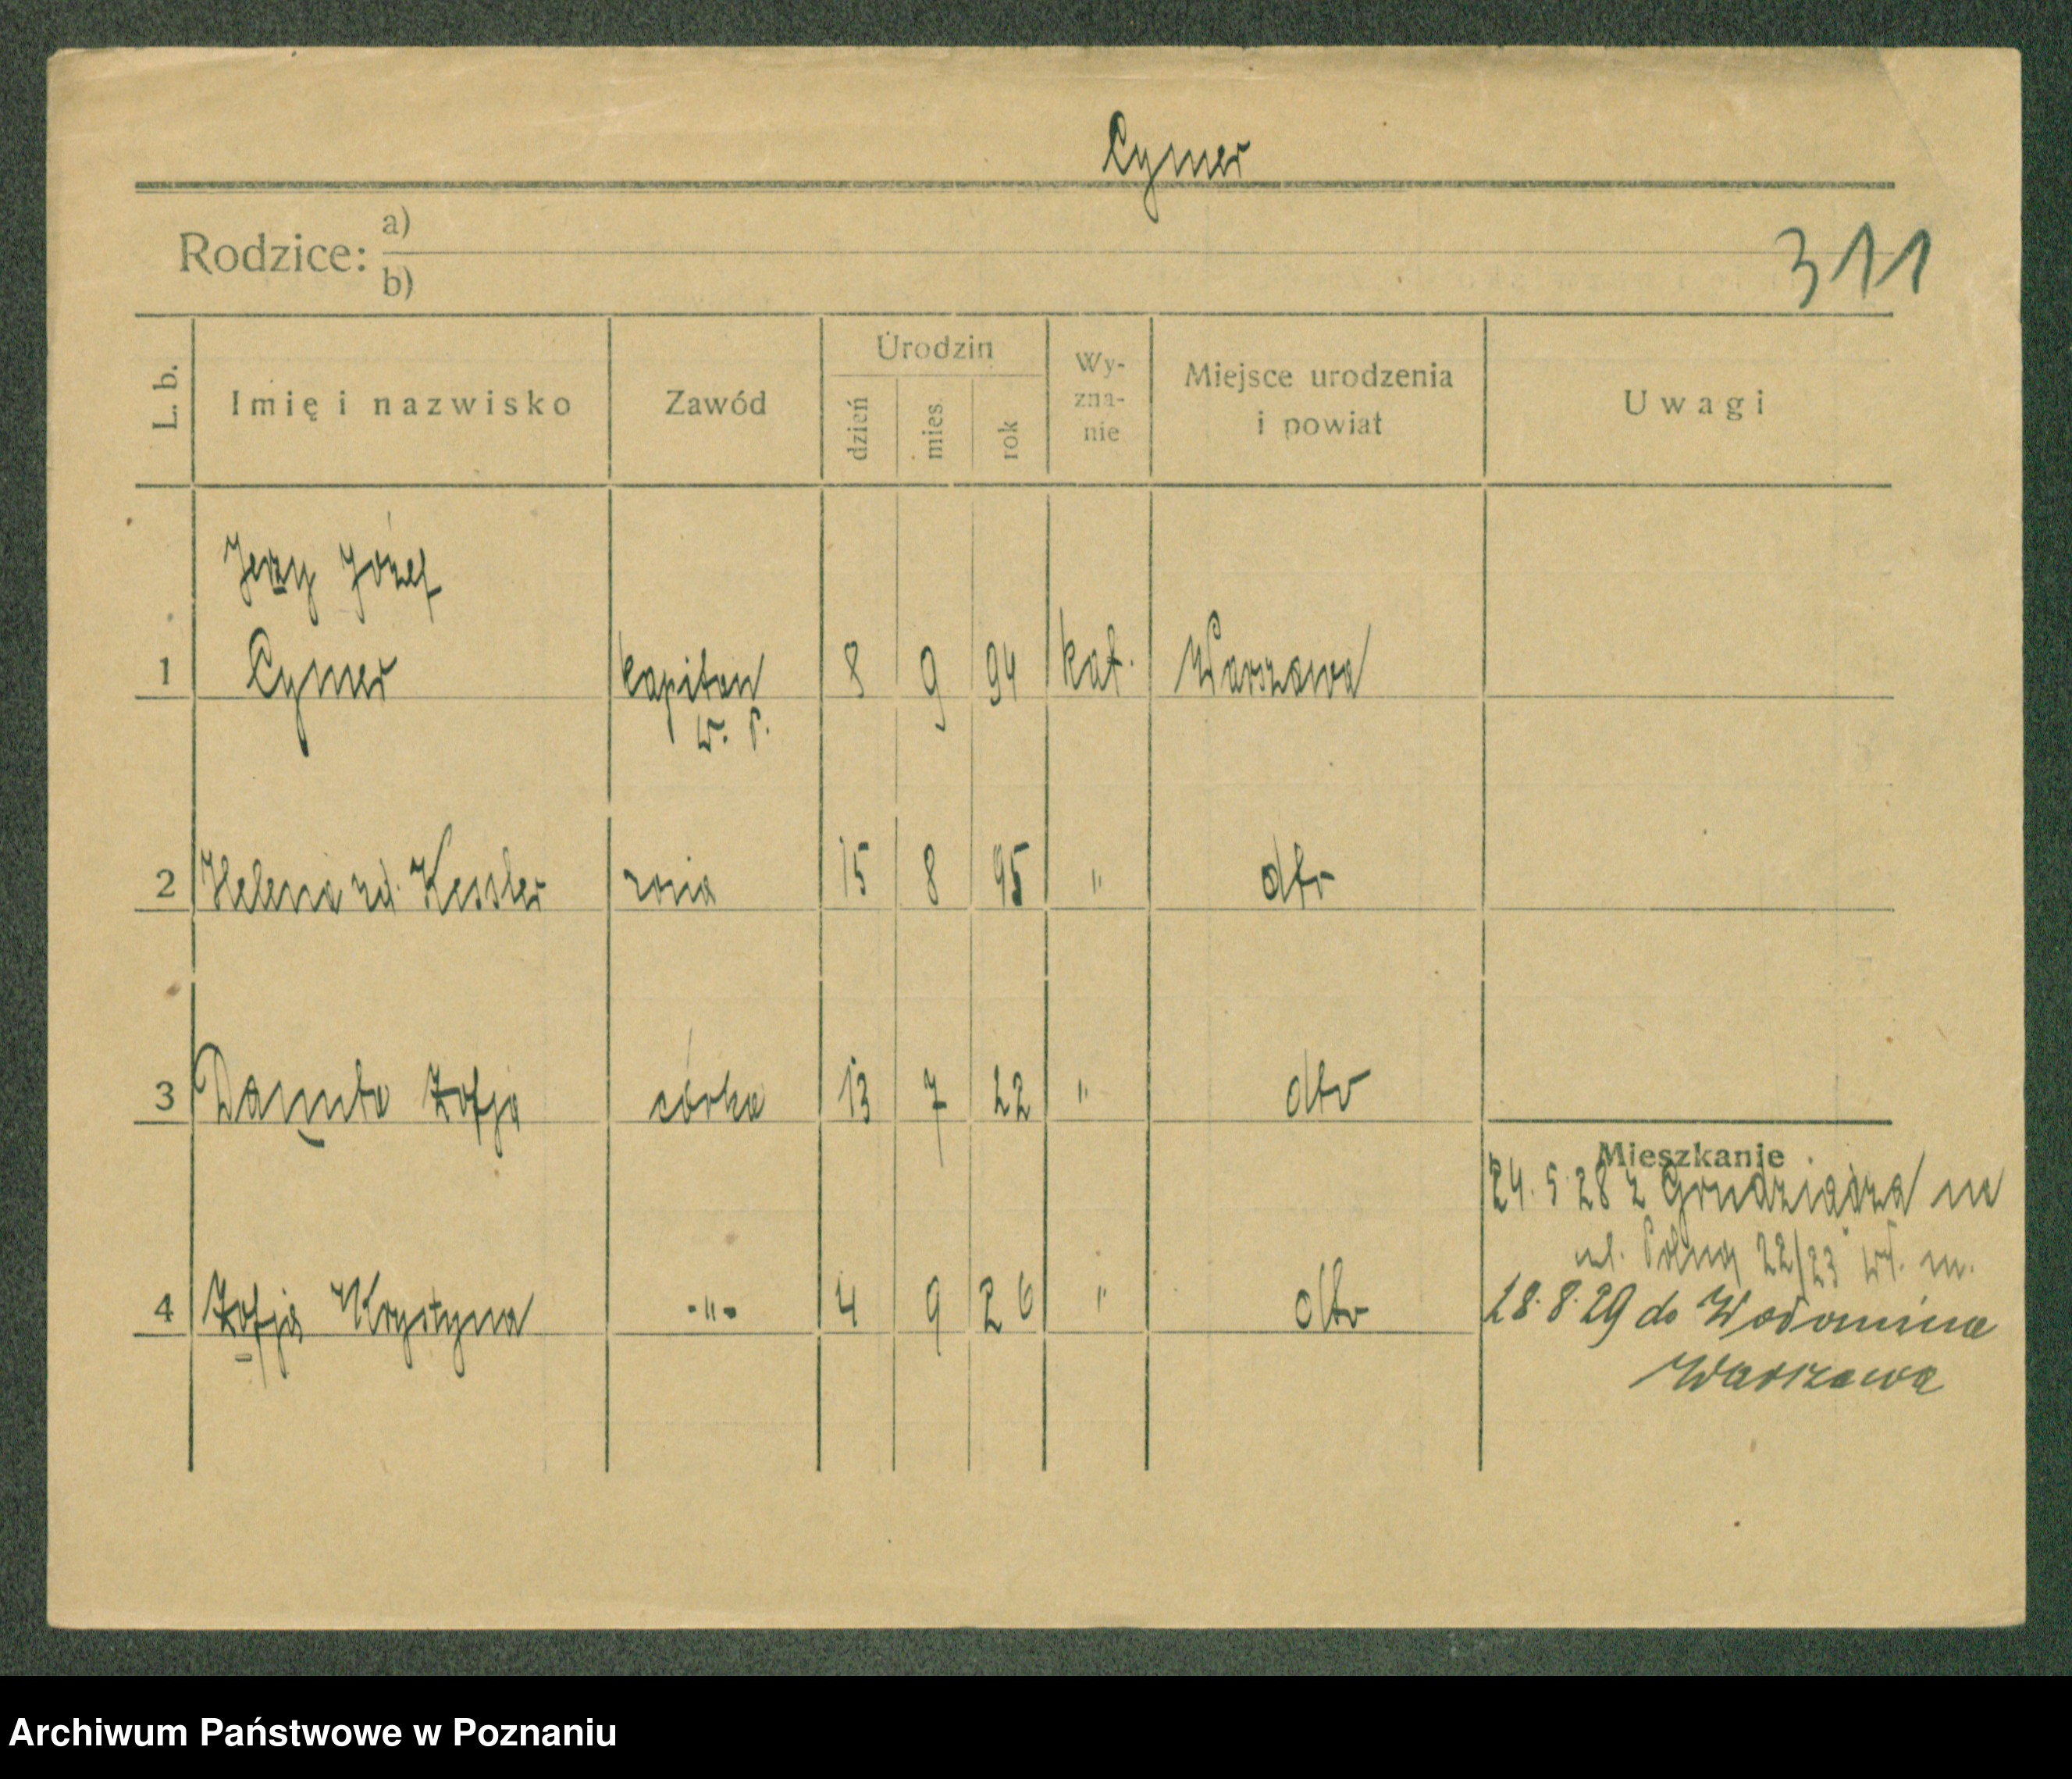 Cymer
Rodzice: a)
b)
311
L. b. Imię i nazwisko Zawód Urodzin dzień mies. rok Wy-zna-nie Miejsce urodzenia i powiat Uwagi
Jerzy Józef
1 Cymer kapitan 8 9 94 kat. Warszawa
W. P.
2 Helena zd. Kessler żona 15 8 95 " dto
3 Danuta Zofja córka 13 7 22 " dto
Mieszkanie
24.5.28 z Grudziądza na
ul. Polną 22/23 wł. m.
4 Zofja Krystyna -"- 4 9 26 " dto
28.8.29 do Wołomina
Warszawa
Archiwum Państwowe w Poznaniu